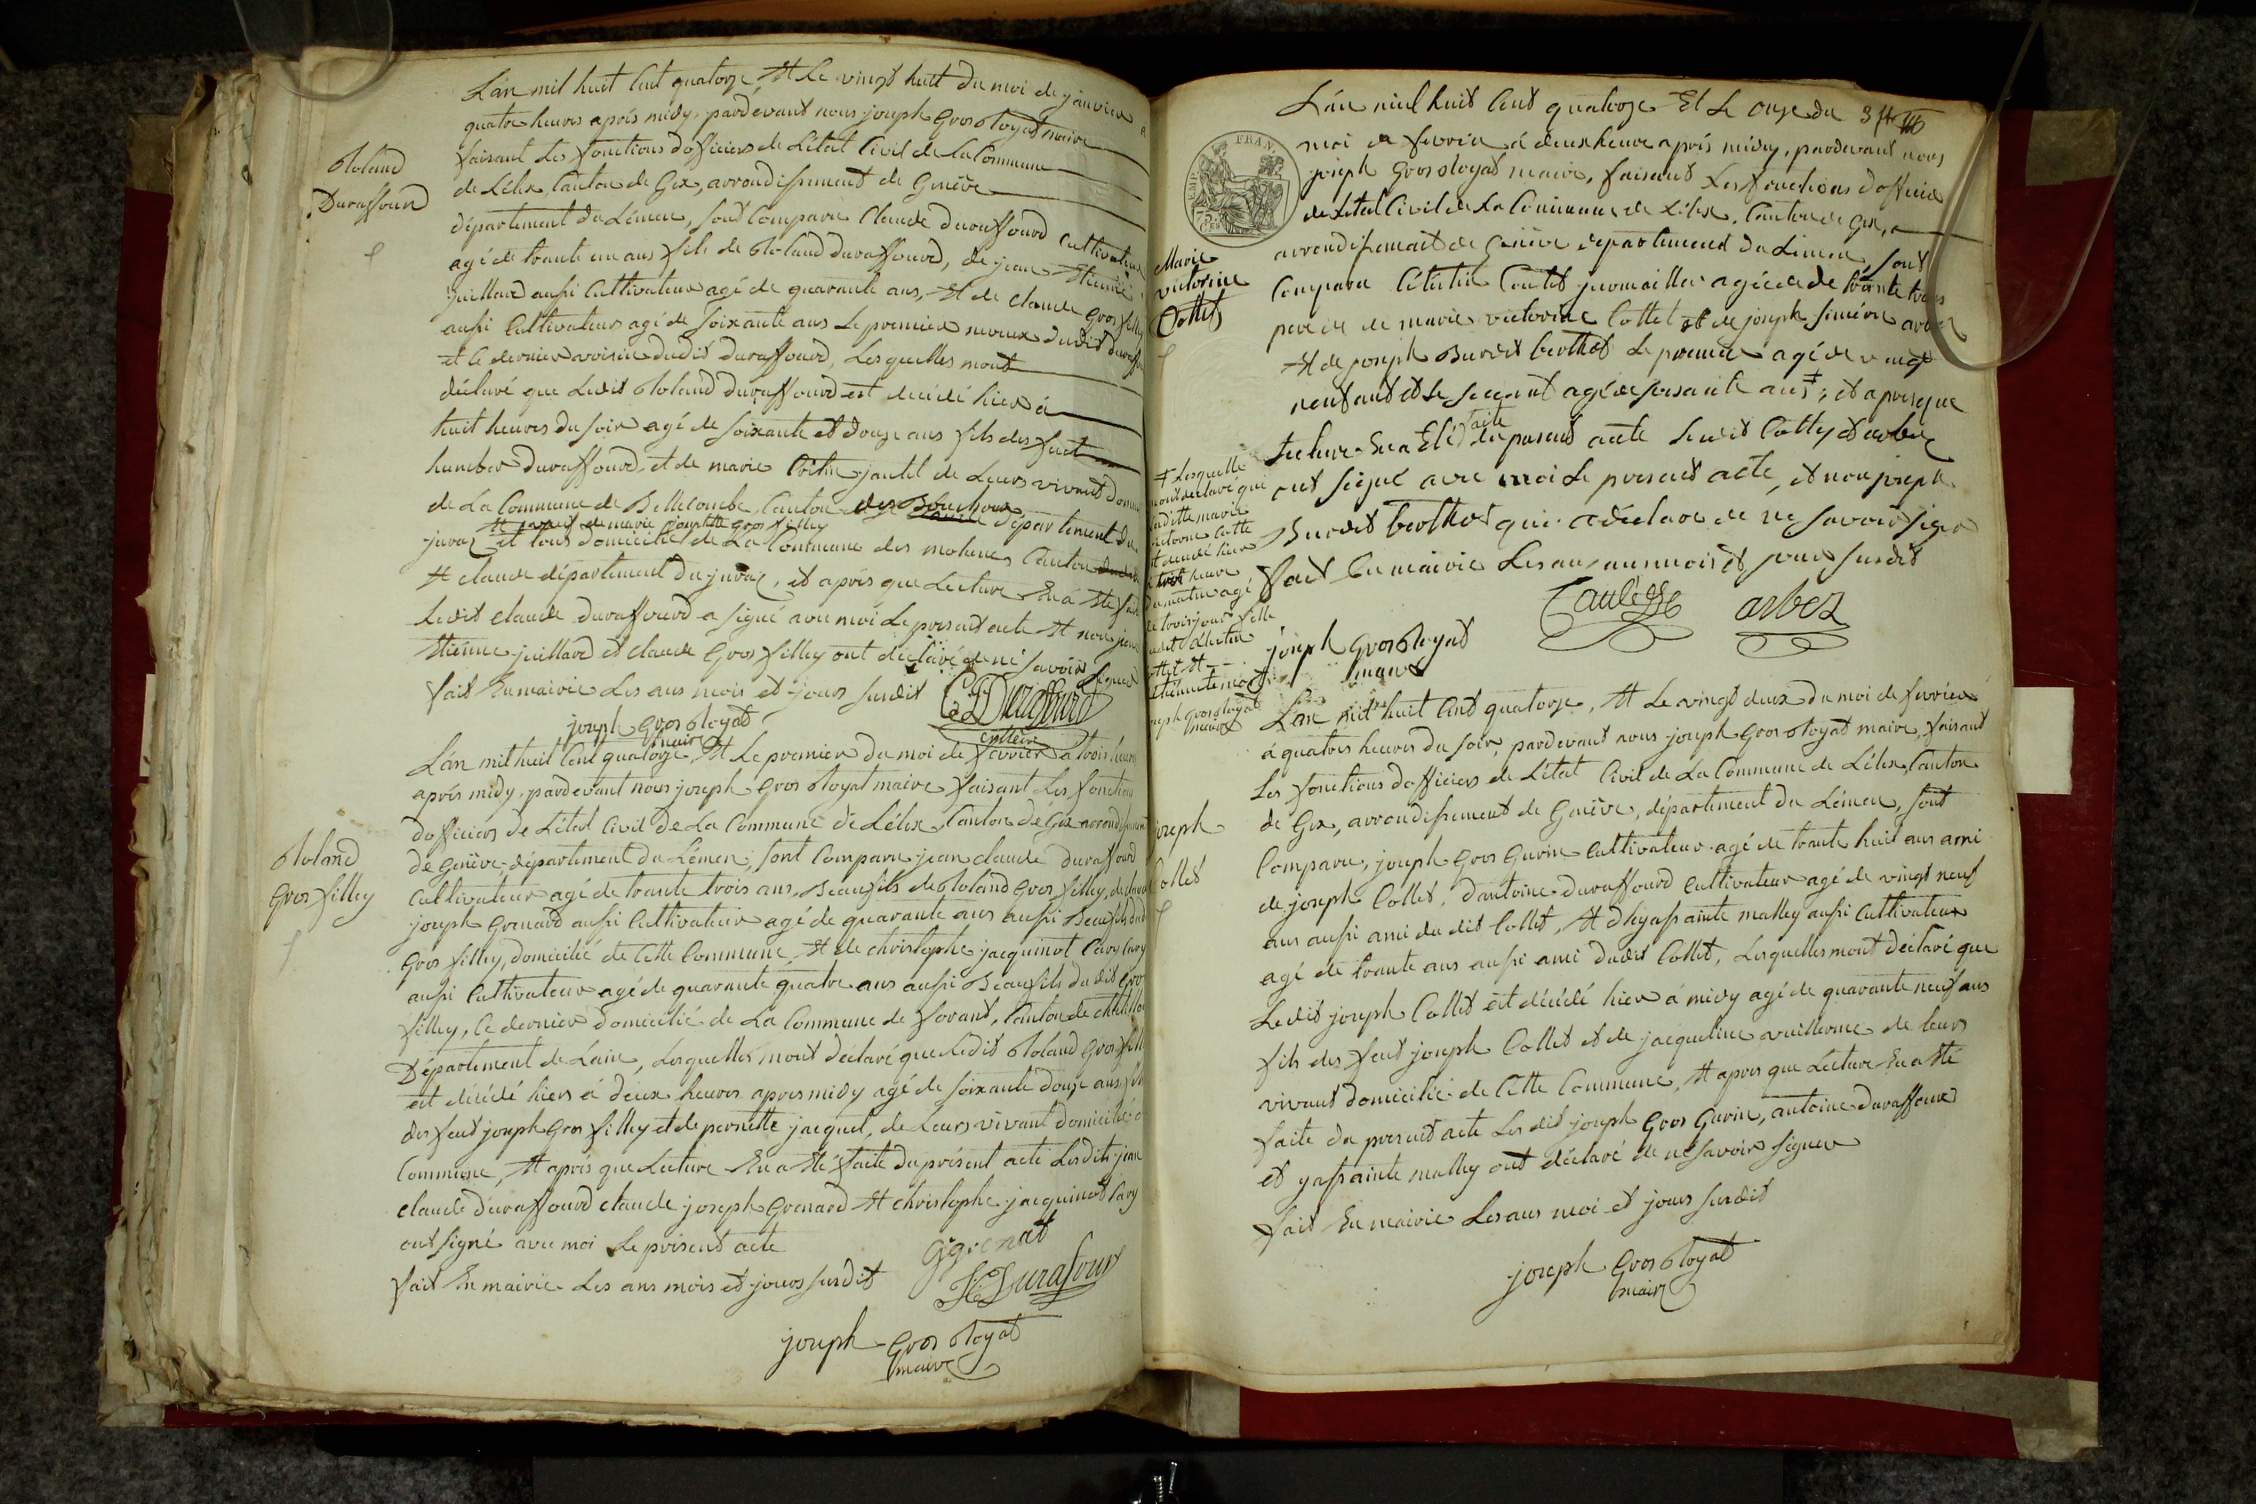 L'an mil huit Cent quatorze, Et Le vingt huit du moi de janvier a
quatre heures après midy, pardevant nous joseph Gros Royat maire
faisant Les fonctions d'officiers de L'état Civil de La Commune
Roland
Duraffourd
de Lélex Canton de Gex, arrondissement de Genève
département du Léman, sont Comparu Claude duraffourd Cultivateur
agé de trante un ans fils de Roland duraffourd, de jean Etienne
juillard aussi Cultivateur agé de quarante ans, Et de Claude Gros filley
aussi Cultivateurs agé de soixante ans Le premier neveux dudit duraffour
et le dernier voisin dudit duraffourd, Lesquelles mont
déclaré que Ledit Roland duraffourd est décédé hier à
huit heures du soir agé de soixante et douze ans fils des feut
humber duraffourd, et de marie jantel de Leurs vivant
de La Commune de Bellecombe, Canton des Bouchoux département du
Et marié de marie josephte gros filley
juraz et tous domicilié de La Commune des molunes Canton
St claude département du juraz, et après que Lecture En a Eté faite
Ledit claude duraffourd a signé avec moi Le present acte Et non jean
Etienne juillard et claude Gros filley ont déclaré de ne savoir Signer
fait En mairie Les ans mois et jours susdit
joseph Gros Royat
maire
L'an mil huit Cent quatorze, Et Le premier du moi de fevrier a trois heures
après midy, pardevant nous joseph Gros Royat maire faisant Les fonctions
d'officiers de L'état Civil de La Commune de Lélex, Canton de Gex arrondissement
Roland
Gros filley
de Genève, département du Léman, sont Comparu jean claude duraffourd
Cultivateur agé de trante trois ans, Beaufils de Roland Gros filley, de claude
joseph Grenard aussi Cultivateur agé de quarante ans aussi Beaufils dudit
Gros filley, domicilié de Cette Commune, Et de christophe jacquinot Cary
aussi Cultivateur agé de quarante quatre ans aussi Beaufils du dit Gros
filley, Ce dernier domicilié de La Commune de forant, Canton de
Département de Lain, Lesquelles mont déclaré que Ledit Roland Gros filley
est décédé hiers à deux heures après midy agé de soixante douze ans, fils
des feut joseph Gros filley et de pernette jacquet, de Leurs vivant domicilié
Commune, Et après que Lecture En a Eté faite du présent acte Lesdits jean
claude duraffourd claude joseph Grenard Et christophe jacquinot Cary
ont signé avec moi Le présent acte
fait En mairie Les ans mois et jours susdit
joseph Gros Royat
maire
L'an mil huit Cent quatorze Et Le onze du
FRAN.
75
moi de fevrier à deux heure après midy, pardevant nous
joseph Gros Royat maire, faisant Les fonctions d'officier
de Letat Civil de La Commune de Lélex, Canton de Gex,
arrondissement de Genève département du Léman, sont
Marie
victorine
Collet
Comparu Célestin Collet agé de trante trois
pere de marie victorine Collet et de joseph siméon arbez
Et de joseph Burdet berthod Le premier agé de vingt
neuf ans et Le second agé de soisante ans ‡; et après que
lecture En a Eté faite du present acte Ledit Collet et arbez
ont signé avec moi Le present acte, et non joseph
Burdet berthod qui a déclaré de ne savoir signer
fait En mairie Les ans, mois et jour susdit
‡ Lesquelle
mont déclaré que
Laditte marie
victorine Collet
est décédé hier
heure
du matin agé
de trois jour fille
dudit Célestin
Collet Et
joseph Gros Royat
maire
arbez
joseph Gros Royat
maire
L'an mil huit Cent quatorze, Et Le vingt deux du moi de fevrier
à quatres heures du soir, pardevant nous joseph Gros Royat maire, faisant
Les fonctions d'officiers de L'état Civil de La Commune de Lélex, Canton
joseph
Collet
de Gex, arrondissement de Genève, département du Léman, sont
Comparu, joseph Gros Gurin Cultivateur agé de trante huit ans ami
de joseph Collet, d'antoine duraffourd Cultivateur agé de vingt neuf
ans aussi ami du dit Collet, Et d'hyassainte malley aussi Cultivateur
agé de trante ans aussi ami dudit Collet, Lesquelles mont déclaré que
Ledit joseph Collet est décédé hier à midy agé de quarante neuf ans
fils des feut joseph Collet et de jacqueline vuillerme de leurs
vivant domicilié de Cette Commune, Et après que Lecture En a Eté
faite du present acte Les dit joseph Gros Gurin, antoine duraffourd
et yassainte malley ont déclaré de ne savoir signer
fait En mairie Les ans moi et jours susdit
joseph Gros Royat
maire